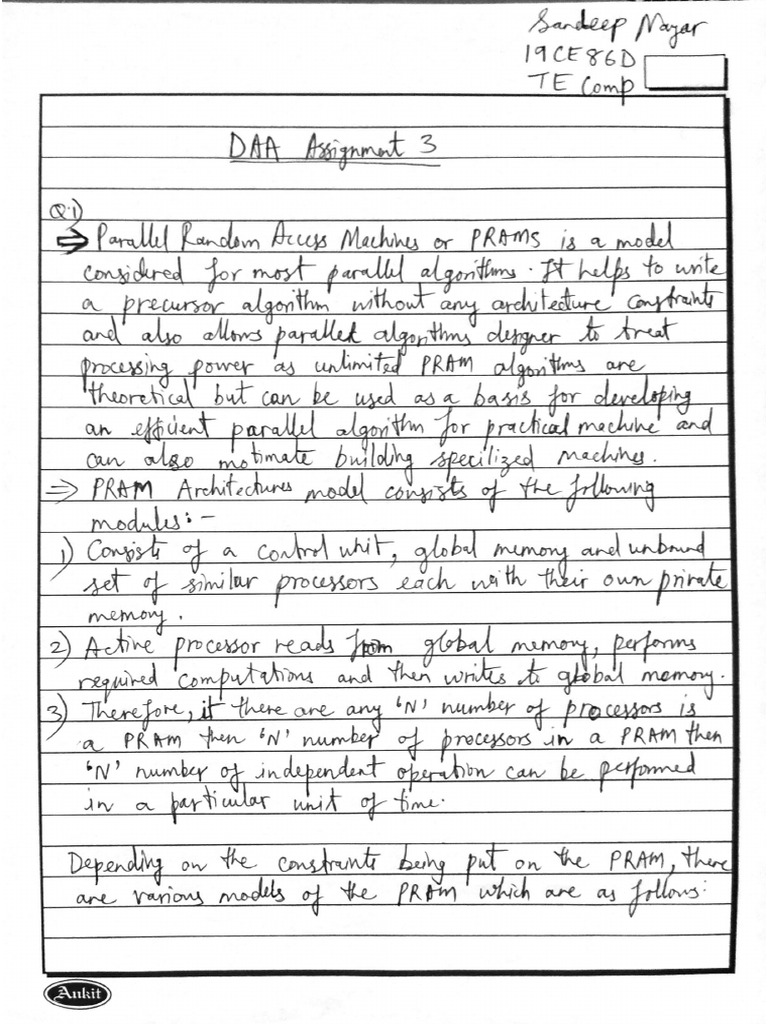 Sandeep Mayar
19CE86D
TE Comp
DAA Assignment 3
Q.1)
⇒ Parallel Random Access Machines or PRAMS is a model
considered for most parallel algorithms. It helps to write
a precursor algorithm without any architecture constraints
and also allows parallel algorithms designer to treat
processing power as unlimited PRAM algorithms are
theoretical but can be used as a basis for developing
an efficient parallel algorithm for practical machine and
can also motimate building specilized machines.
⇒ PRAM Architectures model consists of the following
modules:-
1) Consists of a control unit, global memory and unbound
set of similar processors each with their own private
memory.
2) Active processor reads from global memory, performs
required computations and then writes to global memory.
3) Therefore, if there are any 'N' number of processors is
a PRAM then 'N' number of processors in a PRAM then
'N' number of independent operation can be performed
in a particular unit of time.
Depending on the constraints being put on the PRAM, there
are various models of the PRAM which are as follows:
Ankit